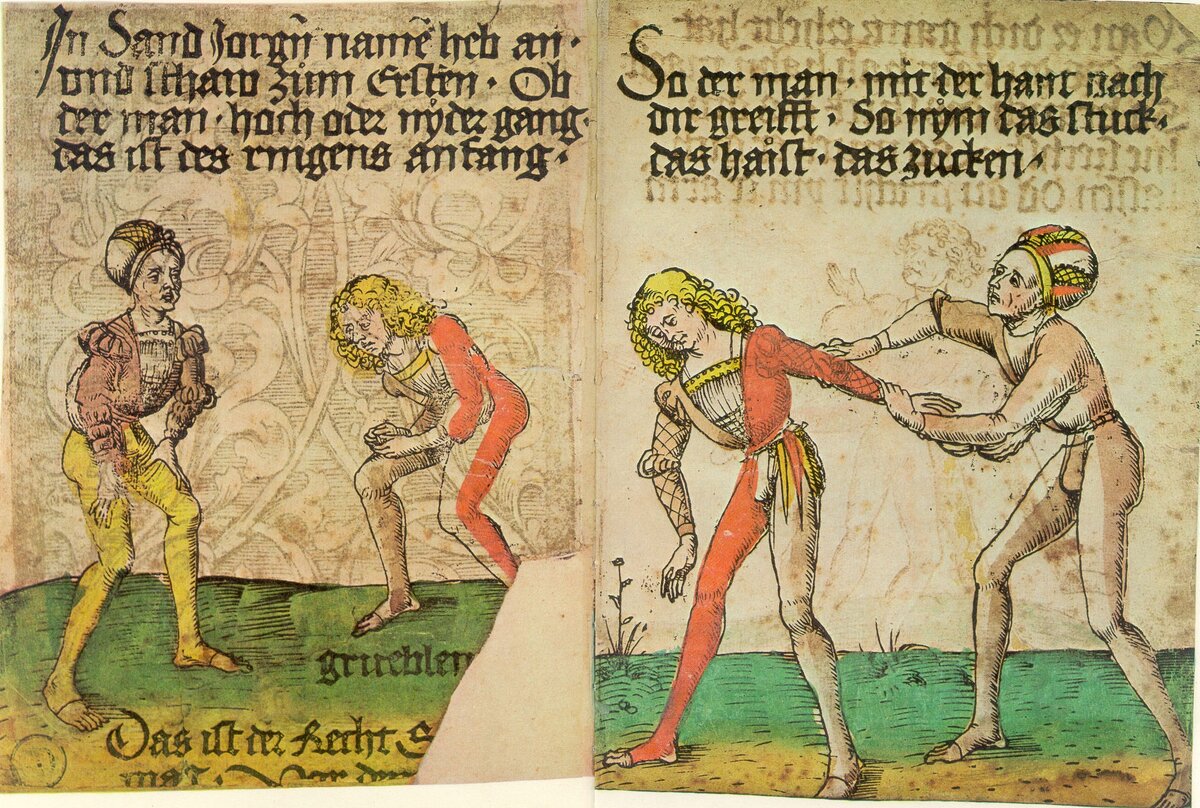 In Sand Jorgn̄ namē heb an·
vnd schaw zům Ersten· Ob
der man· hoch oder nyder gang·
das ist des ringens anfang·
grueblen
Das ist der Recht S
So der man· mit der hant nach
dir greifft· So nym das stuck·
das haist· das zucken·